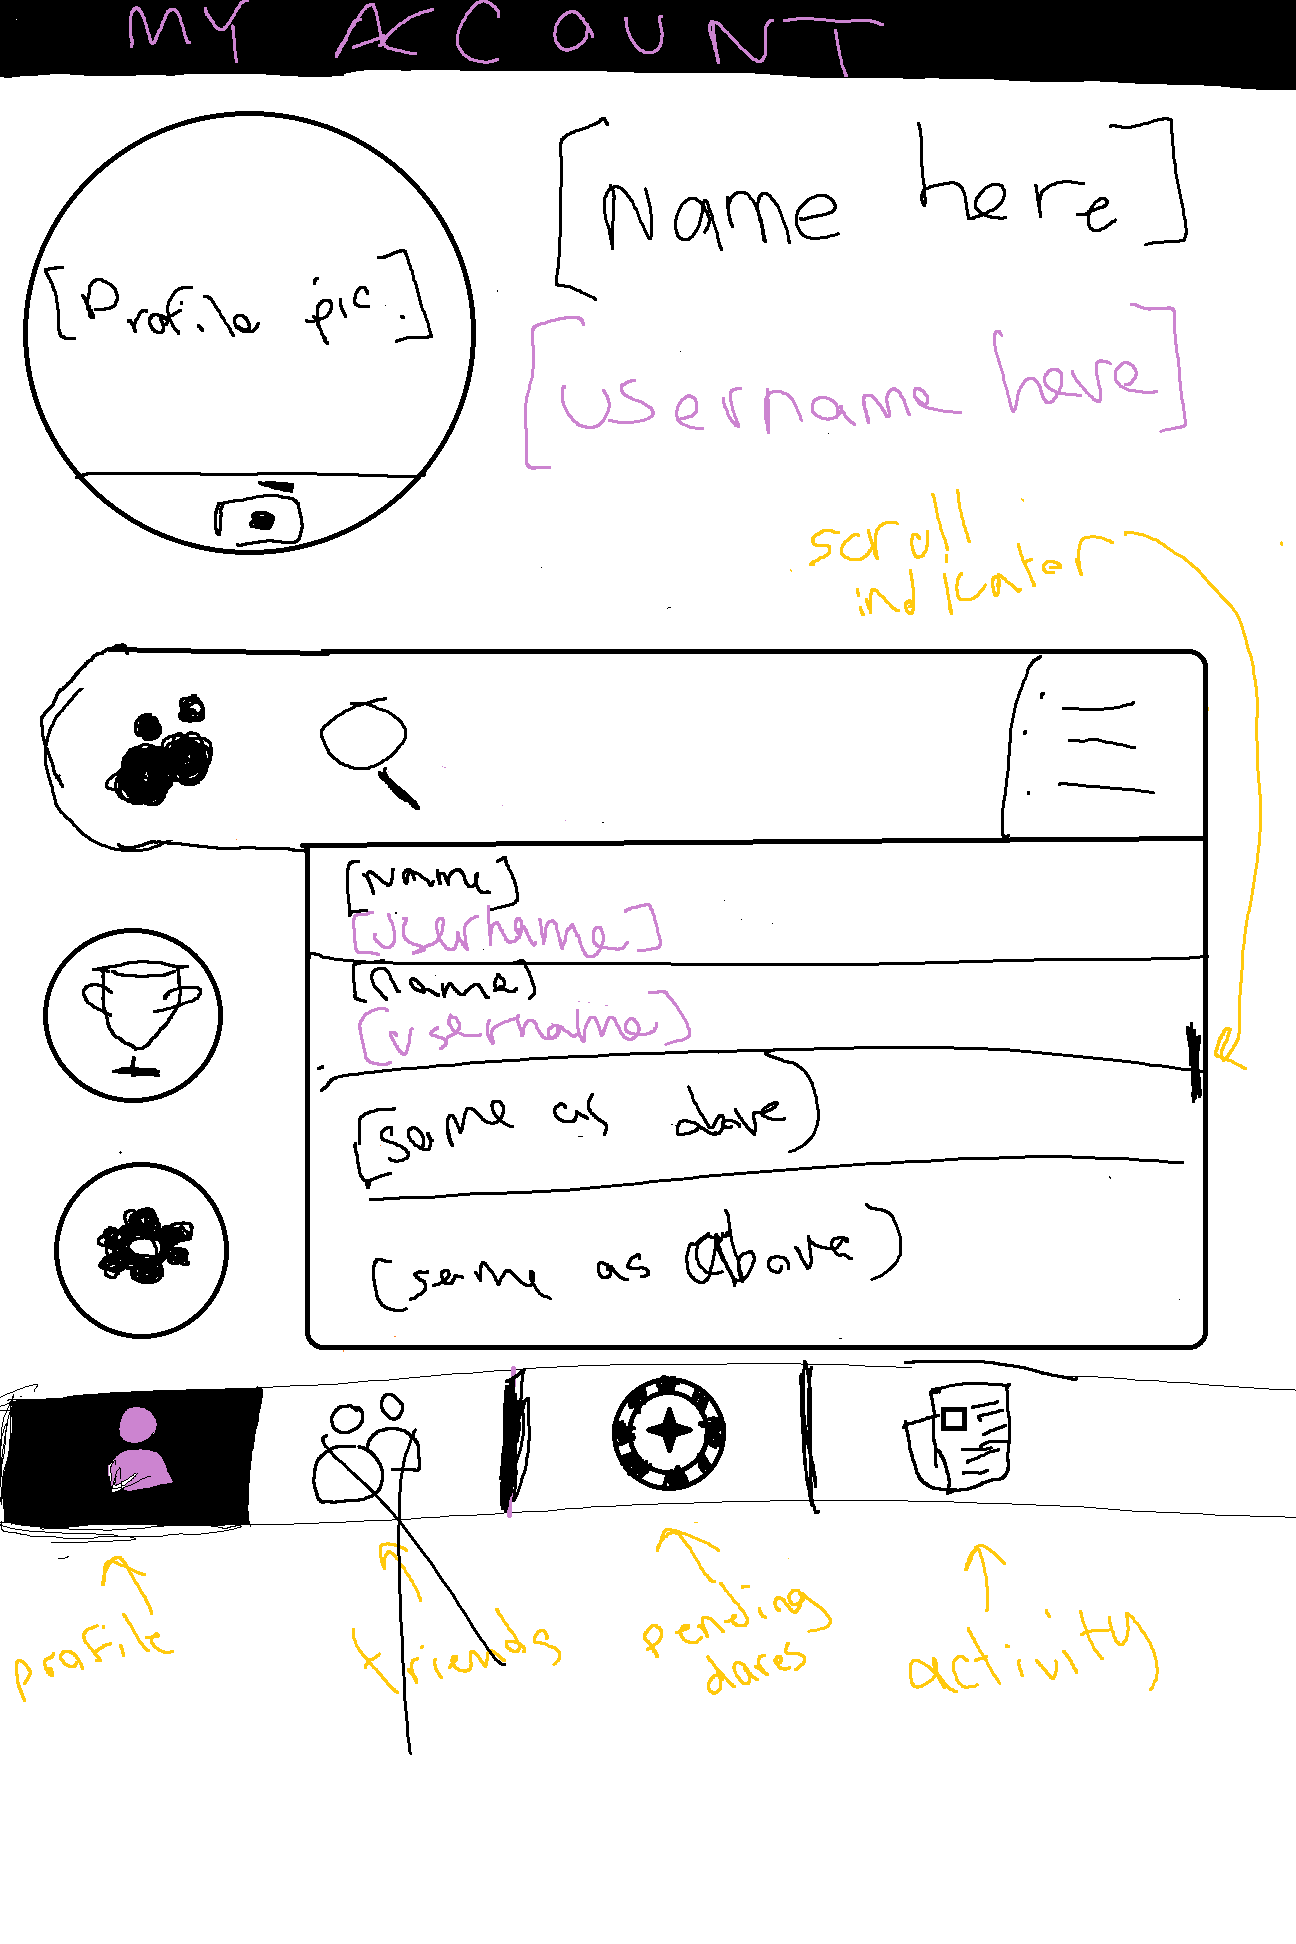 MY ACCOUNT
[Name here]
[Profile pic.]
[username here]
scroll
indicater
[Name]
[username]
[name]
[username]
[same as above)
(same as above)
profile
friends
pending
dares
activity